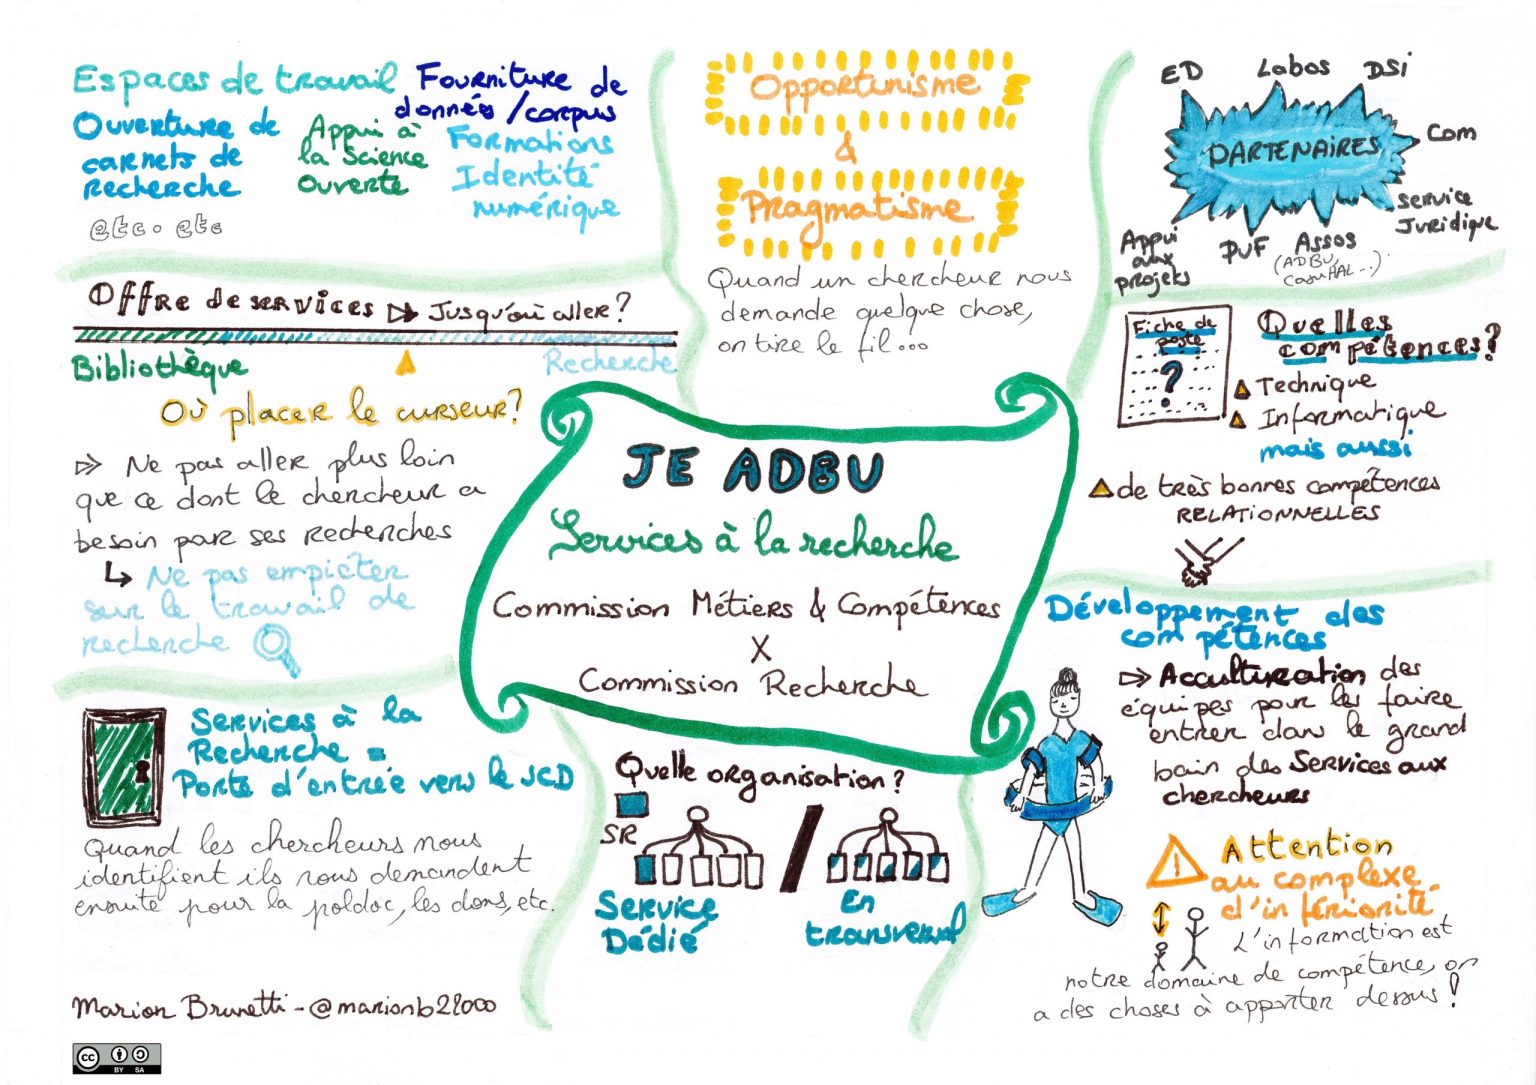 Espaces de travail
Fourniture de
données / corpus
Ouverture de
carnets de
recherche
Appui à
la Science
Ouverte
Formations
Identité
numérique
etc. etc
Opportunisme
&
Pragmatisme
Quand un chercheur nous
demande quelque chose,
on tire le fil...
ED
Labos
DSi
PARTENAIRES
Com
Service
Juridique
Appui
aux
projets
PUF
Assos
(ADBU,
CasuHAL...)
Offre de services ⇒ Jusqu'où aller?
Bibliothèque
Recherche
Où placer le curseur?
⇒ Ne pas aller plus loin
que ce dont le chercheur a
besoin par ses recherches
↳ Ne pas empiéter
sur le travail de
recherche
Fiche de
poste
?
Quelles
compétences?
Technique
Informatique
mais aussi
de très bonnes compétences
RELATIONNELLES
JE ADBU
Services à la recherche
Commission Métiers & Compétences
X
Commission Recherche
Services à la
Recherche =
Porte d'entrée vers le SCD
Quand les chercheurs nous
identifient ils nous demandent
ensuite pour la poldoc, les dons, etc.
Quelle organisation?
SR
Service
Dédié
/
En
transversal
Développement des
compétences
⇒ Acculturation des
équipes pour les faire
entrer dans le grand
bain des Services aux
chercheurs
Attention
au complexe
d'infériorité
L'information est
notre domaine de compétence, on
a des choses à apporter dessus!
Marion Brunetti - @marionb22000
cc
BY SA